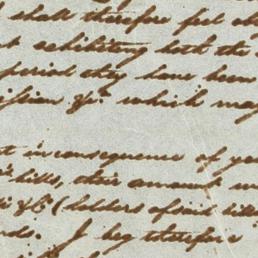 I shall therefore feel
exhibiting both the
period they have been
&c. which may
in consequence of
bills, their amount
&c (letters of said bills
I beg therefore